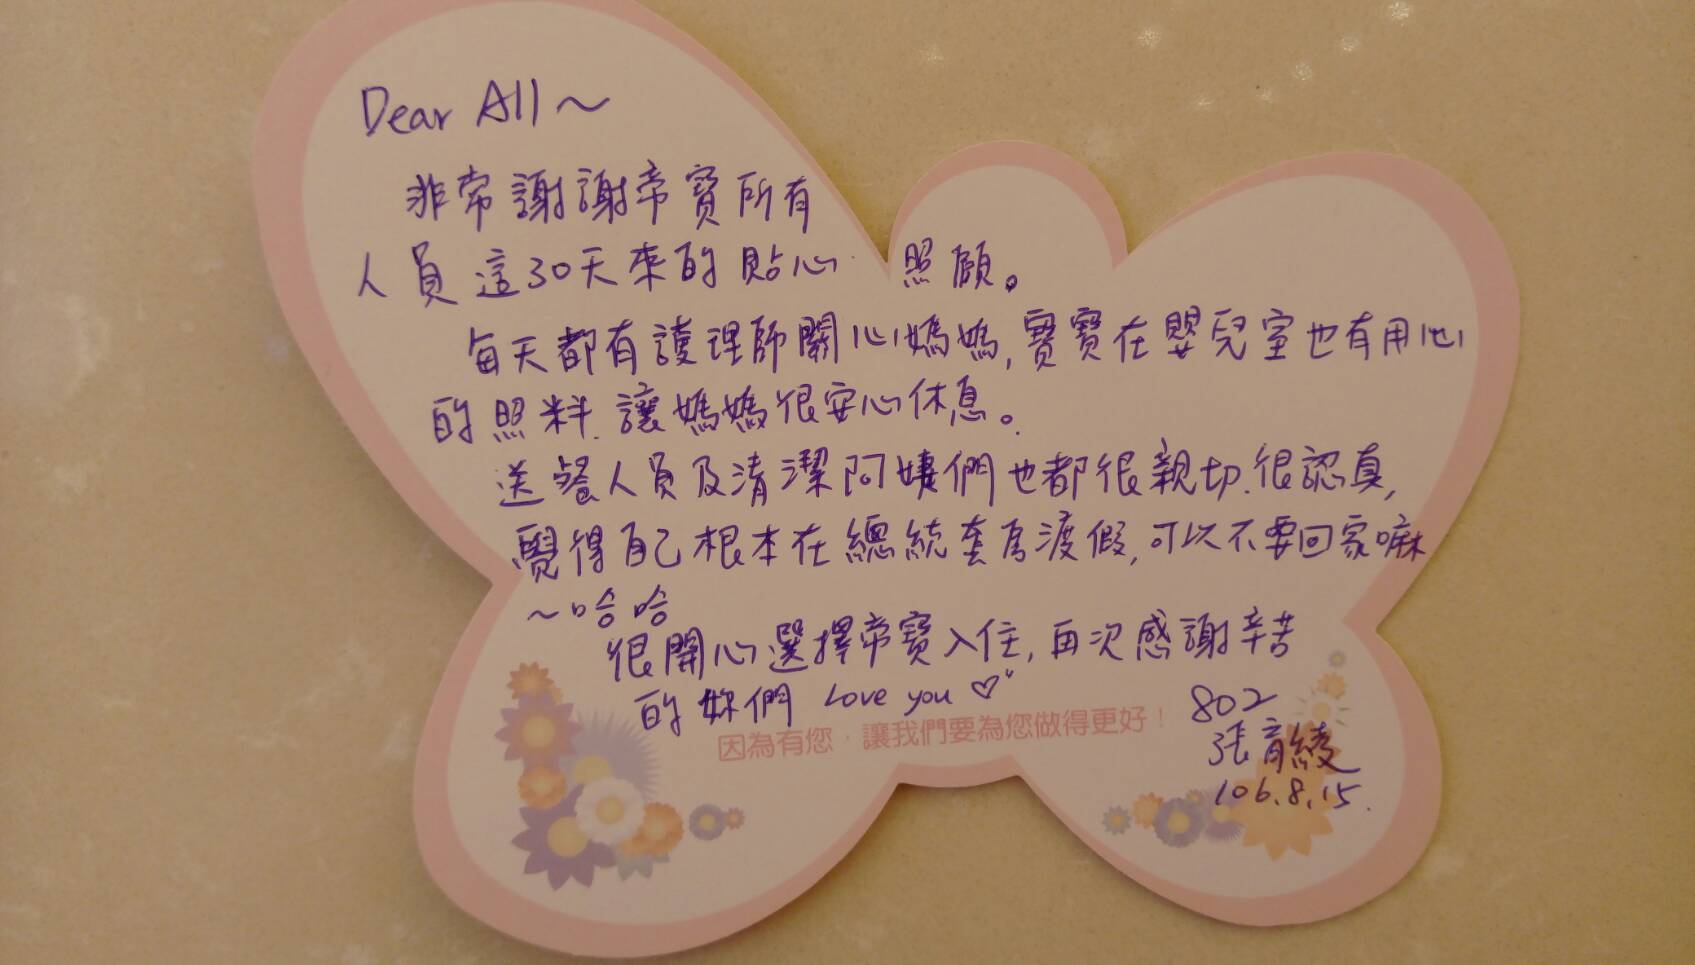 Dear All～
非常謝謝帝寶所有
人員這30天來的貼心 照顧。
每天都有護理師關心媽媽,寶寶在嬰兒室也有用心
的照料.讓媽媽很安心休息。
送餐人員及清潔阿姨們也都很親切.很認真,
覺得自己根本在總統套房渡假,可以不要回家嘛
～哈哈
很開心選擇帝寶入住,再次感謝辛苦
的妳們 Love you ♡
因為有您，讓我們要為您做得更好！
802
張育綾
106.8.15.